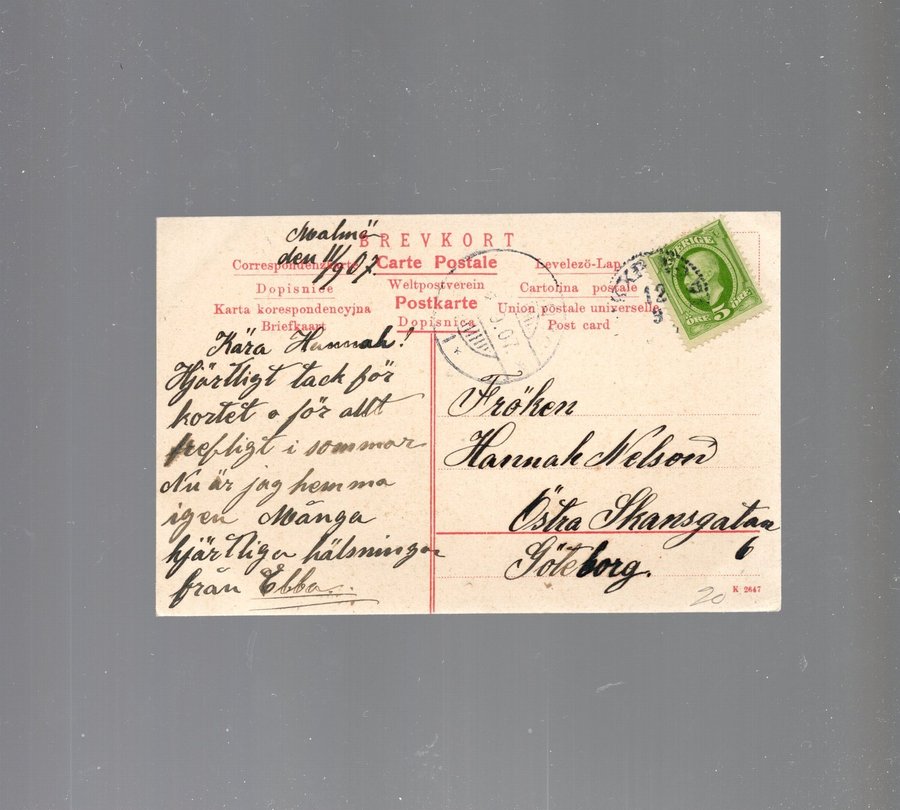 Malmö
den 11/9 07
BREVKORT
Correspondenzkarte Carte Postale Levelezö-Lap
Dopisnice Weltpostverein Cartolina postale
Karta korespondencyjna Postkarte Union postale universelle
Briefkaart Dopisnica Post card
SVERIGE
5
ÖRE ÖRE
PKXP
12
9
Kära Hannah!
Hjärtligt tack för
kortet o för allt
trefligt i sommar
Nu är jag hemma
igen Många
hjärtliga hälsningar
från Ebba.
Fröken
Hannah Nelson
Östra Skansgatan
6
Göteborg.
20
K 2647